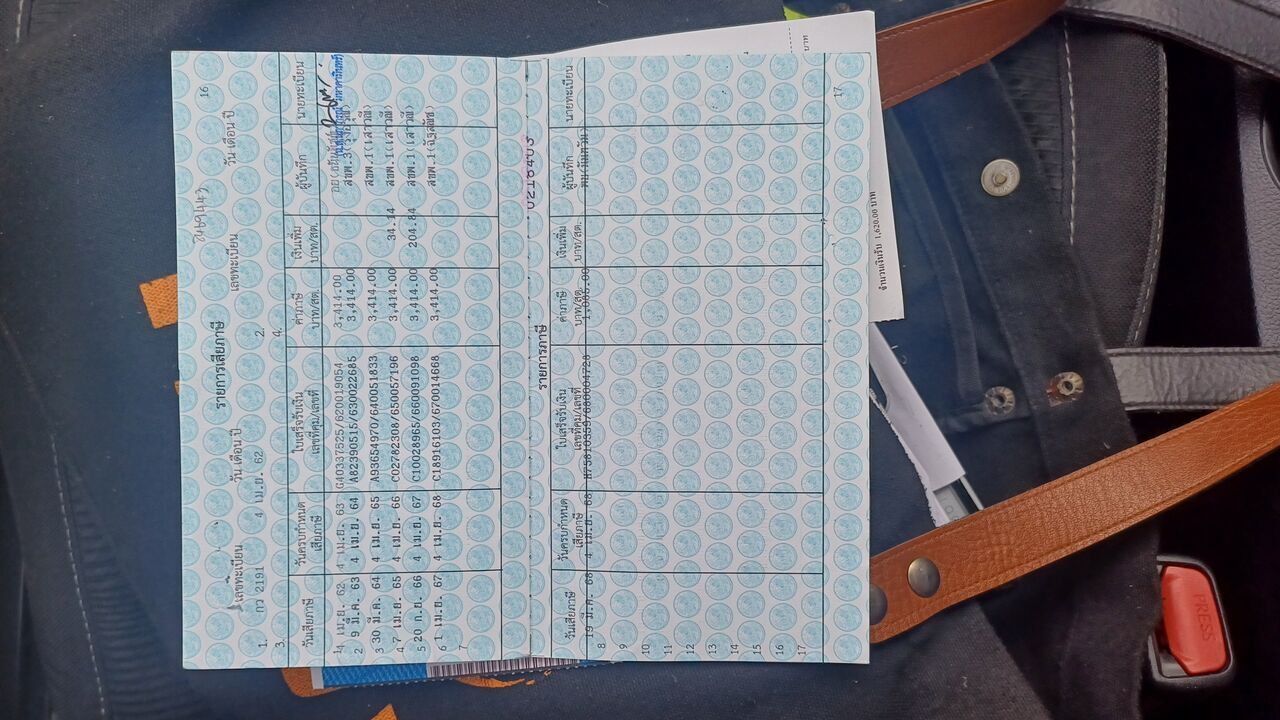 16
รายการเสียภาษี
เลขทะเบียน วัน เดือน ปี เลขทะเบียน วัน เดือน ปี
1. กว 2191 4 เม.ย. 62 2.
3. 4.
วันเสียภาษี วันครบกำหนด เสียภาษี ใบเสร็จรับเงิน เลขที่คุม/เลขที่ ค่าภาษี บาท/สต. เงินเพิ่ม บาท/สต. ผู้บันทึก นายทะเบียน
1 4 เม.ย. 62 4 เม.ย. 63 G40337525/620019054 3,414.00
2 9 มี.ค. 63 4 เม.ย. 64 A82390515/630022685 3,414.00
3 30 มี.ค. 64 4 เม.ย. 65 A93654970/640051833 3,414.00 สขพ.1(เสาวณี)
4 7 เม.ย. 65 4 เม.ย. 66 C02782308/650057196 3,414.00 34.14 สขพ.1(เสาวณี)
5 20 ก.ย. 66 4 เม.ย. 67 C10028965/660091098 3,414.00 204.84 สขพ.1(เสาวณี)
6 1 เม.ย. 67 4 เม.ย. 68 C18916103/670014668 3,414.00
7
0218403
รายการภาษี
วันเสียภาษี วันครบกำหนด เสียภาษี ใบเสร็จรับเงิน เลขที่คุม/เลขที่ ค่าภาษี บาท/สต. เงินเพิ่ม บาท/สต. ผู้บันทึก นายทะเบียน
19 มี.ค. 68 4 เม.ย.
8
9
10
11
12
13
14
15
16
17
17
จำนวนเงินรับ 1,620.00 บาท
บาท
PRESS